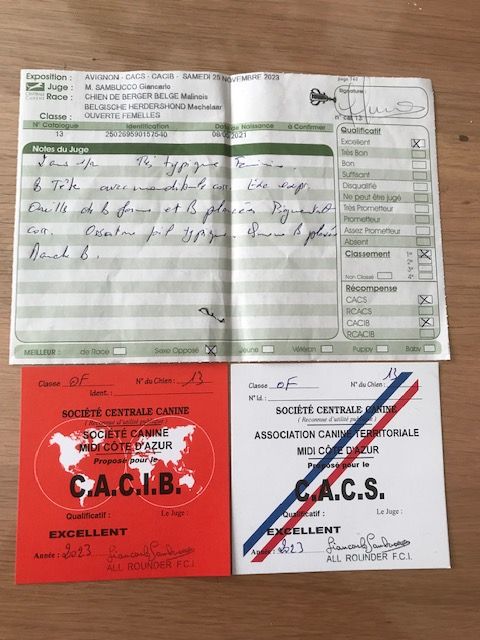 Exposition : AVIGNON - CACS - CACIB - SAMEDI 25 NOVEMBRE 2023
page 161
CENTRALE CANINE
Juge : M. SAMBUCCO Giancarlo
Signature
Race : CHIEN DE BERGER BELGE Malinois
BELGISCHE HERDERSHOND Mechelaar
Classe : OUVERTE FEMELLES
n° cat. 13
N° Catalogue Identification Date de Naissance à Confirmer
13 250269590157540 2021
Qualificatif
Excellent X
Très Bon
Bon
Suffisant
Disqualifié
Ne peut être jugé
Très Prometteur
Prometteur
Assez Prometteur
Absent
Notes du Juge
2 ans 1/2 Très typique
B Tête avec mandibule corr.
Oreille de B forme et B placées
corr. Ossature poil typique B placée
B.
Classement 1er X
2e
3e
Non Classé 4e
Récompense
CACS X
RCACS
CACIB X
RCACIB
MEILLEUR : de Race Sexe Opposé X Jeune Vétéran Puppy Baby
Classe OF N° du Chien : 13
Ident. :
SOCIÉTÉ CENTRALE CANINE
( Reconnue d'utilité publique )
SOCIÉTÉ CANINE
MIDI CÔTE D'AZUR
Proposé pour le
C.A.C.I.B.
Qualificatif : Le Juge :
EXCELLENT
Année : 2023
ALL ROUNDER F.C.I.
Classe OF N° du Chien : 13
N° Id. :
SOCIÉTÉ CENTRALE CANINE
( Reconnue d'utilité publique )
ASSOCIATION CANINE TERRITORIALE
MIDI CÔTE D'AZUR
Proposé pour le
C.A.C.S.
Qualificatif : Le Juge :
EXCELLENT
Année : 2023
ALL ROUNDER F.C.I.